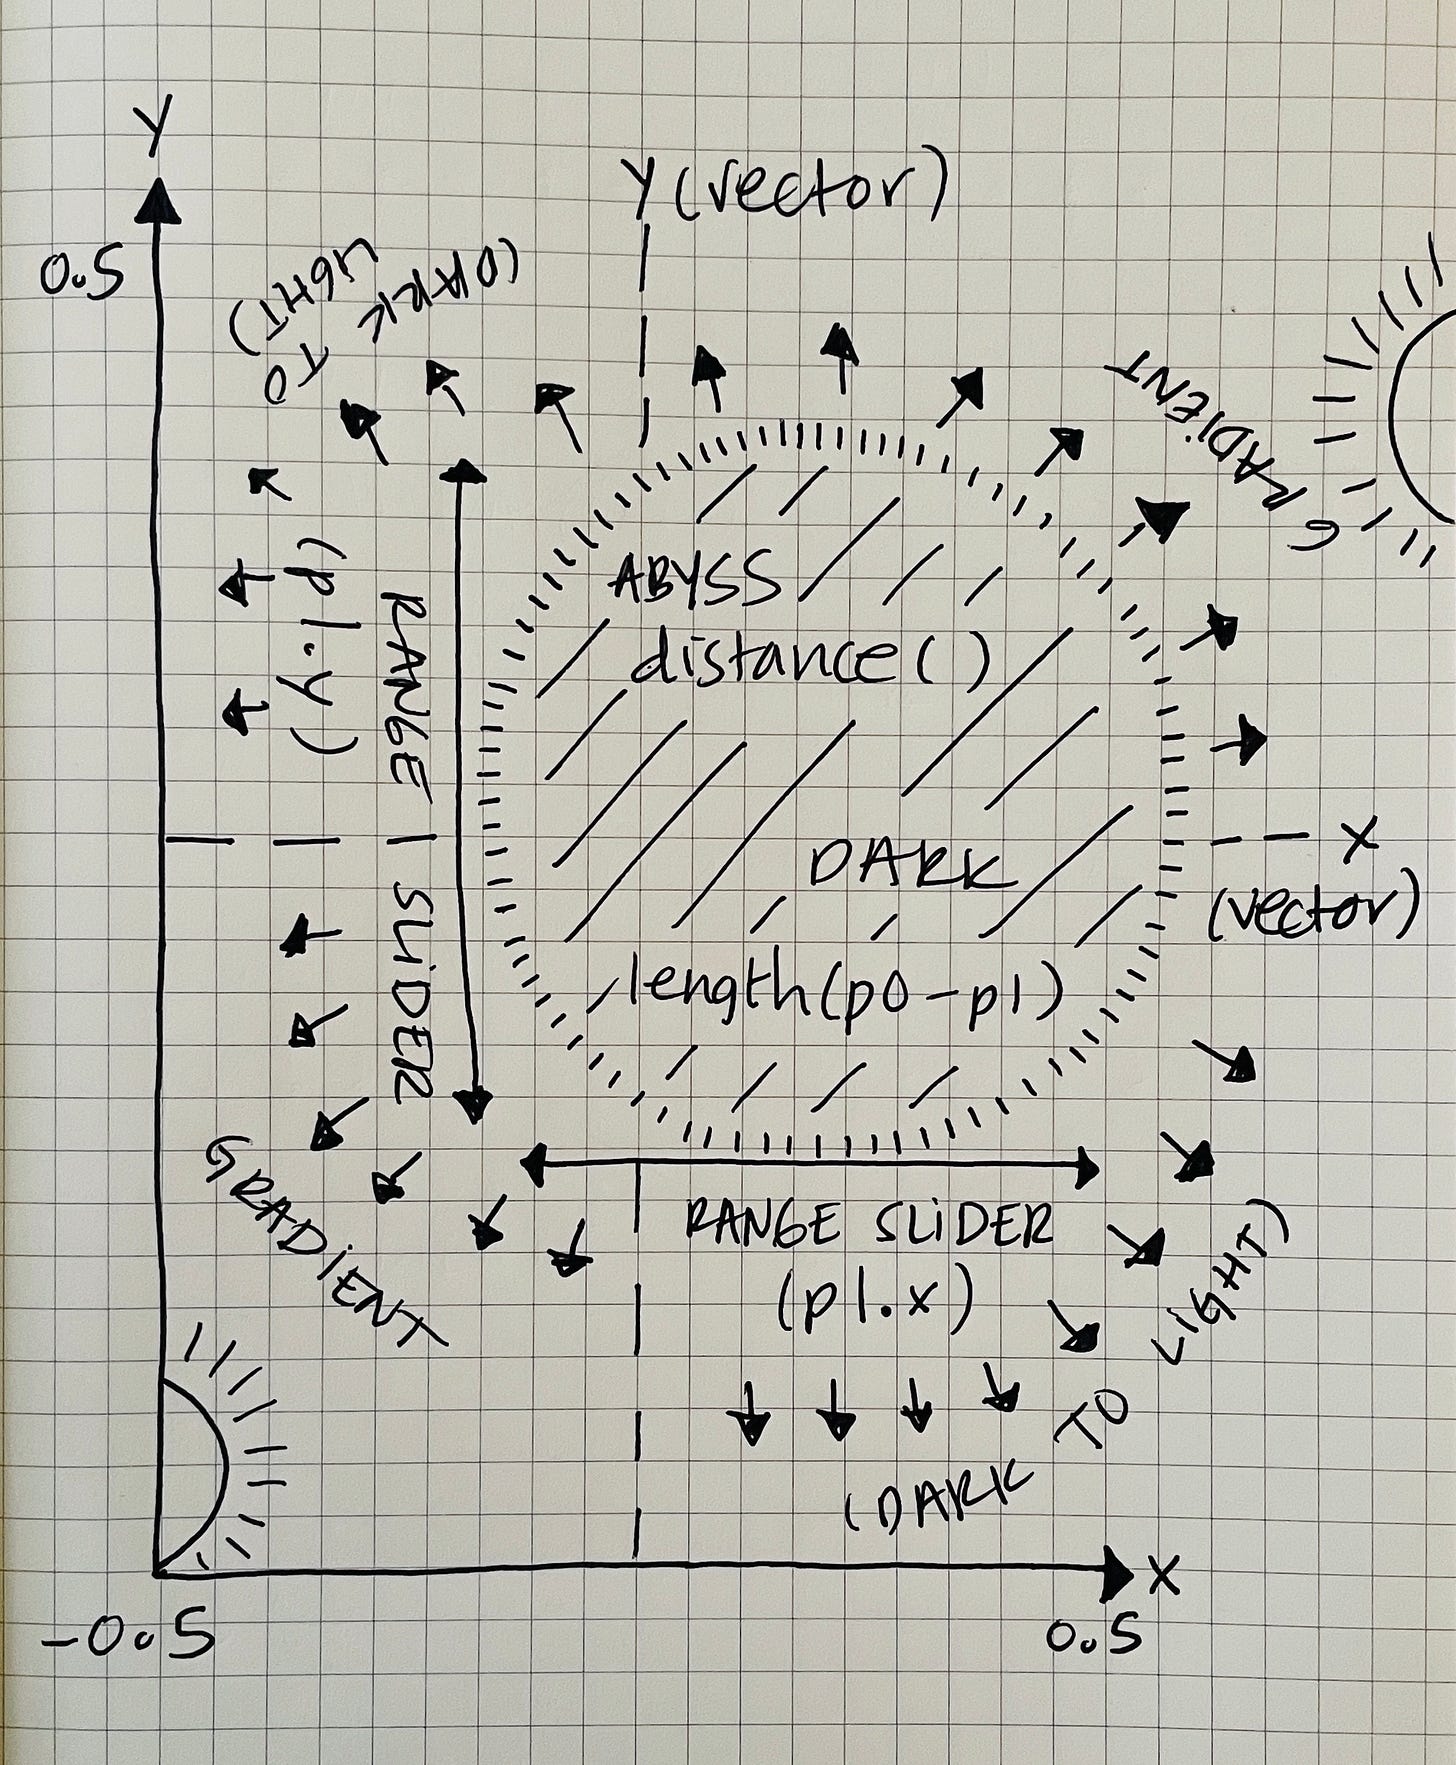 Y
Y (vector)
0.5
(DARK
TO
LIGHT)
GRADIENT
ABYSS
distance()
(p1.y)
RANGE SLIDER
DARK
X
(vector)
length(p0-p1)
GRADIENT
RANGE SLIDER
(p1.x)
(DARK TO LIGHT)
X
-0.5
0.5